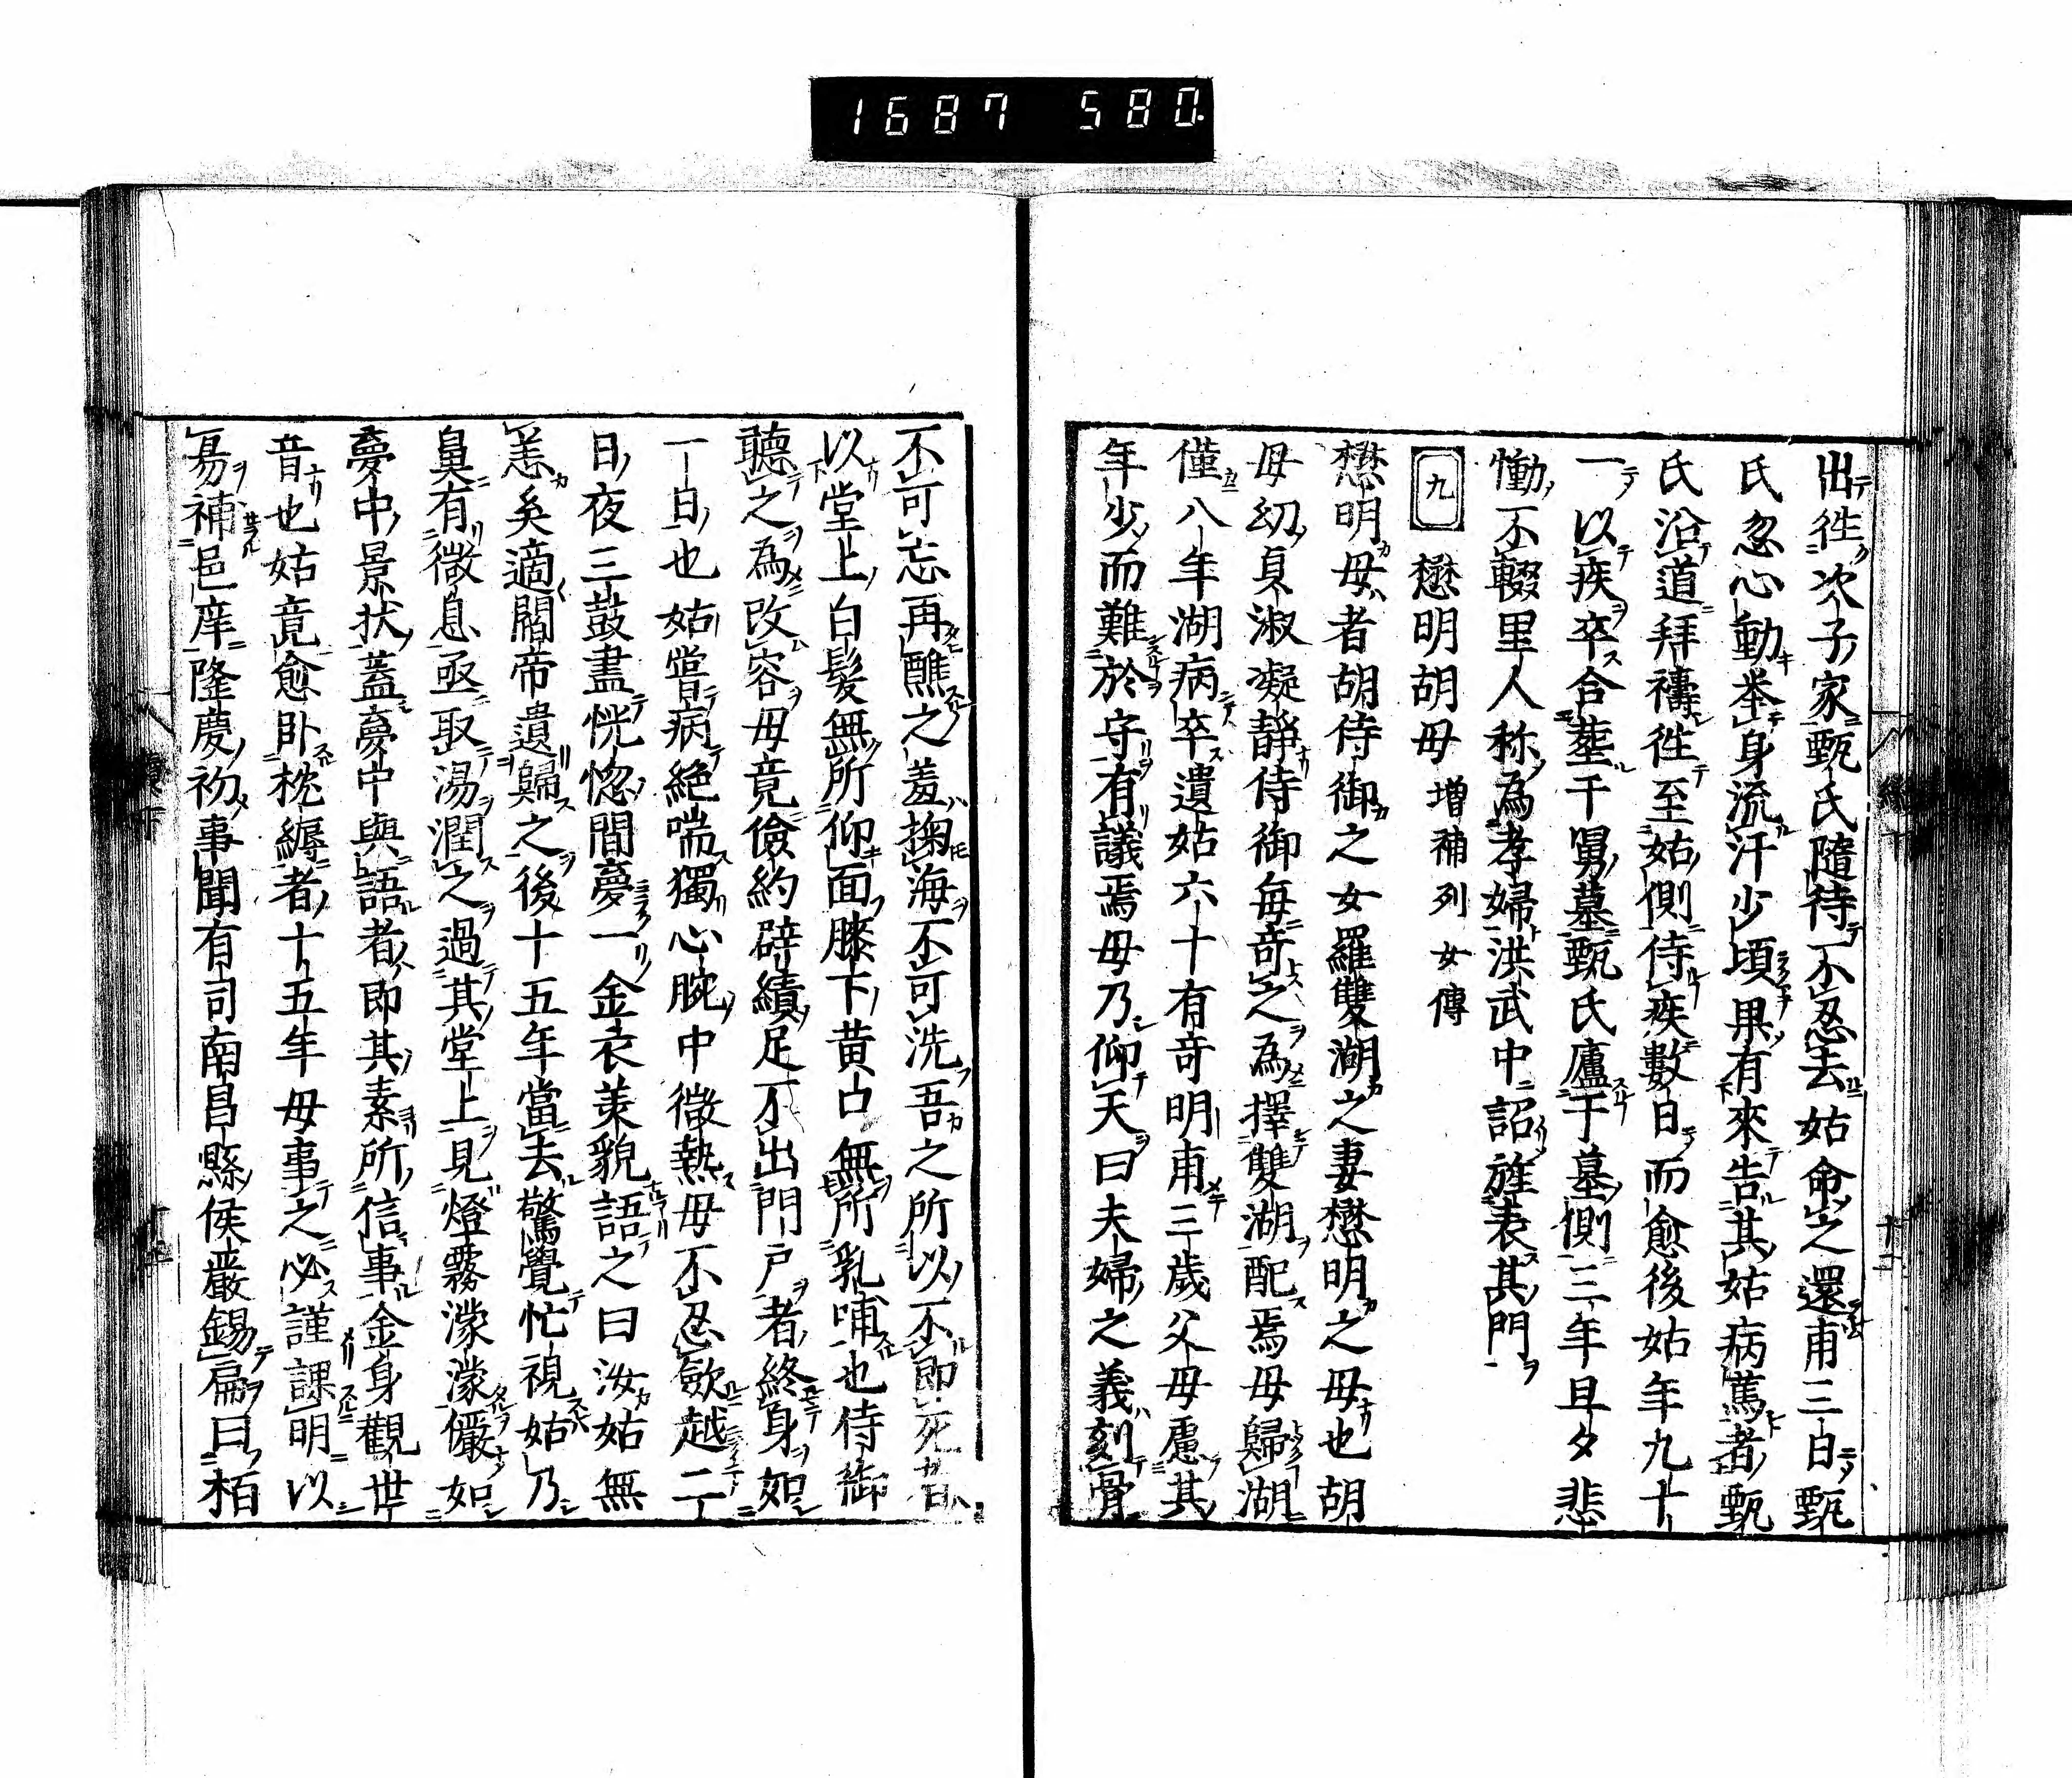 1687 580.
出往次子家甄氏隨待不忍去姑命之還甫三日甄
氏忽心動举身流汗少頃果有來告其姑病篤者甄
氏沿道拜禱往至姑側侍疾數日而愈後姑年九十
一以疾卒合塟于舅墓甄氏廬于墓側三年旦夕悲
慟不輟里人称為孝婦洪武中詔旌表其門
九 懋明胡母 增補列女傳
懋明母者胡侍御之女羅雙湖之妻懋明之母也胡
母幼貞淑凝静侍御每竒之為擇雙湖配焉母歸湖
僅八年湖病卒遺姑六十有奇明甫三歲父母慮其
年少而難於守有議焉母乃仰天曰夫婦之義刻骨
不可忘再醮之羞掬海不可洗吾之所以不即死者
以堂上白髮無所仰面膝下黄口無所乳哺也侍御
聽之為改容母竟儉約辟績足不出門戸者終身如
一日也姑嘗病絶喘獨心腕中微熱母不忍歛越二
日夜三鼓盡恍惚間夢一金衣美貌語之曰汝姑無
恙矣適閻帝遺歸之後十五年當去驚覺忙視姑乃
鼻有微息亟取湯潤之過其堂上見燈霧濛濛儼如
夢中景状蓋夢中與語者即其素所信事金身觀世
音也姑竟愈卧枕縟者十五年母事之必謹課明以
昜補邑庠隆慶初事聞有司南昌縣侯嚴錫扁曰栢